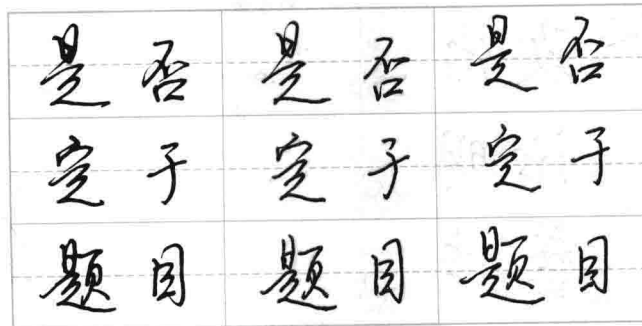 是否 是否 是否
定于 定于 定于
题目 题目 题目